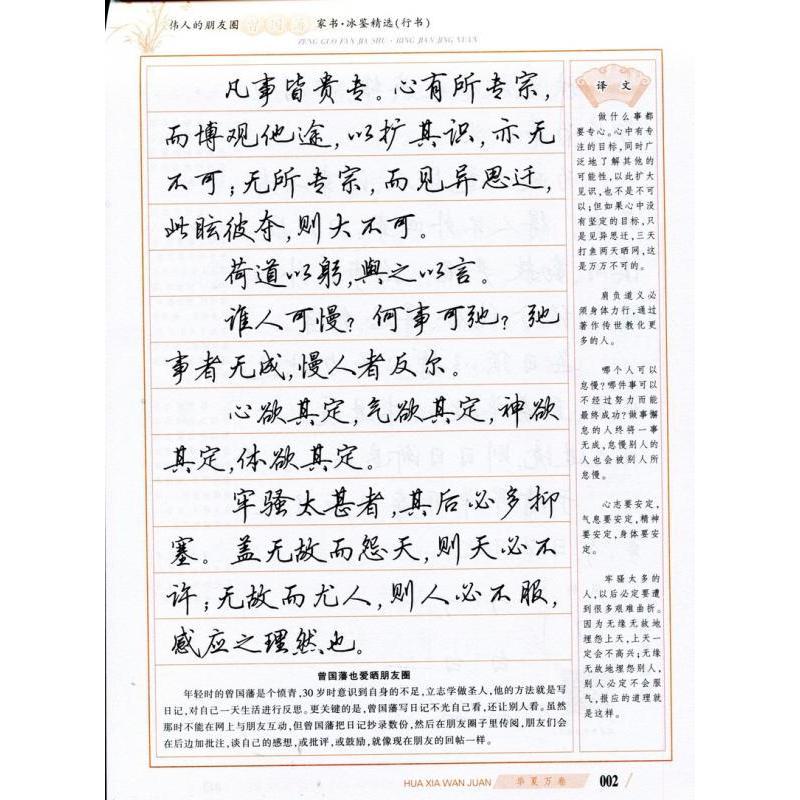 伟人的朋友圈 曾国藩 家书·冰鉴精选(行书)
ZENG GUO FAN JIA SHU · BING JIAN JING XUAN
凡事皆贵专。心有所专宗，
而博观他途，以扩其识，亦无
不可；无所专宗，而见异思迁，
此眩彼夺，则大不可。
荷道以躬，與之以言。
谁人可慢？何事可弛？弛
事者无成，慢人者反尔。
心欲其定，气欲其定，神欲
其定，体欲其定。
牢骚太甚者，其后必多抑
塞。盖无故而怨天，则天必不
许；无故而尤人，则人必不服，
感应之理然也。
译文
做什么事都
要专心。心中有专
注的目标，同时广
泛地了解其他的
可能性，以此扩大
见识，也不是不可
以；但如果心中没
有坚定的目标，只
是见异思迁，三天
打鱼两天晒网，这
是万万不可的。
肩负道义必
须身体力行，通过
著作传世教化更
多的人。
哪个人可以
怠慢？哪件事可以
不经过努力而能
最终成功？做事懈
怠的人终将一事
无成，怠慢别人的
人也会被别人所
怠慢。
心志要安定，
气息要安定，精神
要安定，身体要安
定。
牢骚太多的
人，以后必定要遭
到很多艰难曲折。
因为无缘无故地
埋怨上天，上天一
定会不高兴；无缘
无故地埋怨别人，
别人必定不会服
气，报应的道理就
是这样。
曾国藩也爱晒朋友圈
年轻时的曾国藩是个愤青，30岁时意识到自身的不足，立志学做圣人，他的方法就是写
日记，对自己一天生活进行反思。更关键的是，曾国藩写日记不光自己看，还让别人看。虽然
那时不能在网上与朋友互动，但曾国藩把日记抄录数份，然后在朋友圈子里传阅，朋友们会
在后边加批注，谈自己的感想，或批评，或鼓励，就像现在朋友的回帖一样。
HUA XIA WAN JUAN 华夏万卷 002